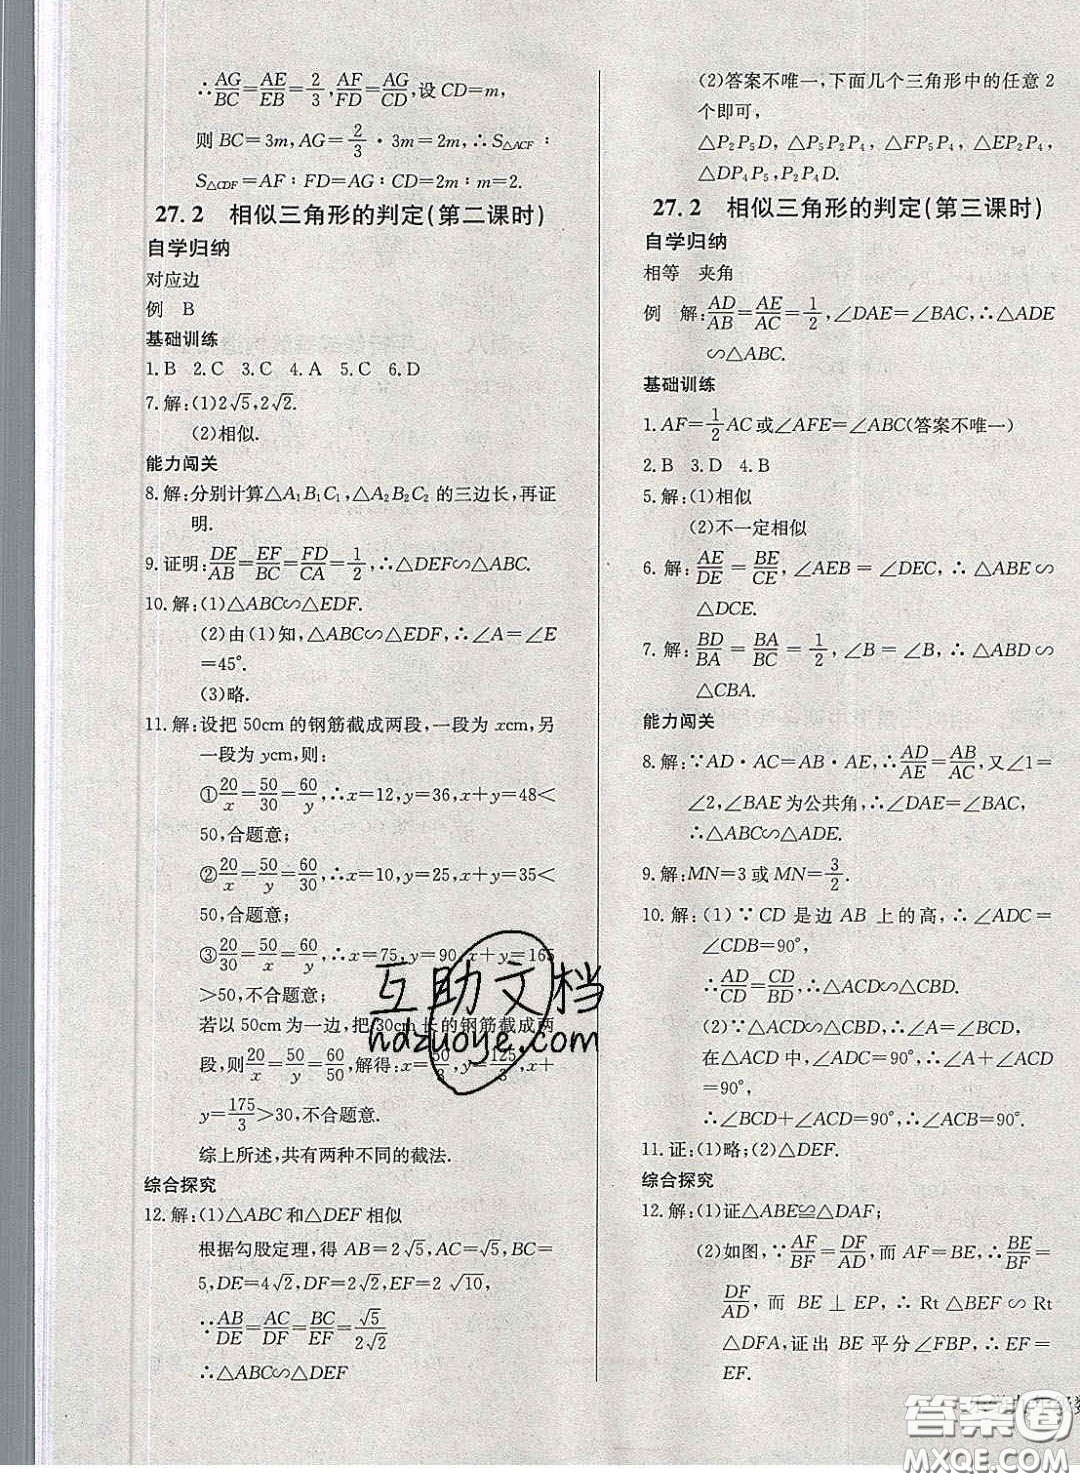 ∴AG/BC=AE/EB=2/3,AF/FD=AG/CD,设 CD=m,
则 BC=3m,AG=2/3·3m=2m,∴S△ACF∶
S△CDF=AF∶FD=AG∶CD=2m∶m=2.
27.2 相似三角形的判定(第二课时)
自学归纳
对应边
例 B
基础训练
1.B 2.C 3.C 4.A 5.C 6.D
7.解:(1)2√5,2√2.
(2)相似.
能力闯关
8.解:分别计算△A₁B₁C₁,△A₂B₂C₂ 的三边长,再证
明.
9.证明:DE/AB=EF/BC=FD/CA=1/2,∴△DEF∽△ABC.
10.解:(1)△ABC∽△EDF.
(2)由(1)知,△ABC∽△EDF,∴∠A=∠E
=45°.
(3)略.
11.解:设把 50cm 的钢筋截成两段,一段为 xcm,另
一段为 ycm,则:
①20/x=50/30=60/y,∴x=12,y=36,x+y=48<
50,合题意;
②20/x=50/y=60/30,∴x=10,y=25,x+y=35<
50,合题意;
③20/30=50/x=60/y,∴x=75,y=90,x+y=165
>50,不合题意;
若以 50cm 为一边,把 30cm 长的钢筋截成两
段,则20/x=50/y=60/50,解得:x=50/3,y=125/3,x+
y=175/3>30,不合题意.
综上所述,共有两种不同的截法.
综合探究
12.解:(1)△ABC 和△DEF 相似
根据勾股定理,得 AB=2√5,AC=√5,BC=
5,DE=4√2,DF=2√2,EF=2√10,
∵AB/DE=AC/DF=BC/EF=√5/2√2
∴△ABC∽△DEF
(2)答案不唯一,下面几个三角形中的任意 2
个即可,
△P₂P₅D,△P₅P₂P₂,△FP₅P₄,△EP₂P₂
△DP₄P₅,P₂P₄D.
27.2 相似三角形的判定(第三课时)
自学归纳
相等 夹角
例 解:AD/AB=AE/AC=1/2,∠DAE=∠EAC,∴△ADE
∽△ABC.
基础训练
1.AF=1/2AC 或∠AFE=∠ABC(答案不唯一)
2.B 3.D 4.B
5.解:(1)相似
(2)不一定相似
6.解:AE/DE=BE/CE,∠AEB=∠DEC,∴△ABE∽
△DCE.
7.解:BD/BA=BA/BC=1/2,∠B=∠B,∴△ABD∽
△CBA.
能力闯关
8.解:∵AD·AC=AB·AE,∴AD/AE=AB/AC,又∠1=
∠2,∠BAE 为公共角,∴∠DAE=∠BAC,
∴△ABC∽△ADE.
9.解:MN=3 或 MN=3/2.
10.解:(1)∵CD 是边 AB 上的高,∴∠ADC=
∠CDB=90°,
∴AD/CD=CD/BD,∴△ACD∽△CBD.
(2)∵△ACD∽△CBD,∴∠A=∠BCD,
在△ACD 中,∠ADC=90°,∴∠A+∠ACD
=90°,
∴∠BCD+∠ACD=90°,∴∠ACB=90°
11.证:(1)略;(2)△DEF.
综合探究
12.解:(1)证△ABE≌△DAF;
(2)如图,∵AF/BF=DF/AD,而 AF=BE,∴BE/BF=
DF/AD,而 BE⊥EP,∴Rt△BEF∽Rt
△DFA,证出 BE 平分∠FBP,∴EF=
EF.
互助文档
hdzuoye.com
答案圈
MXQE.COM